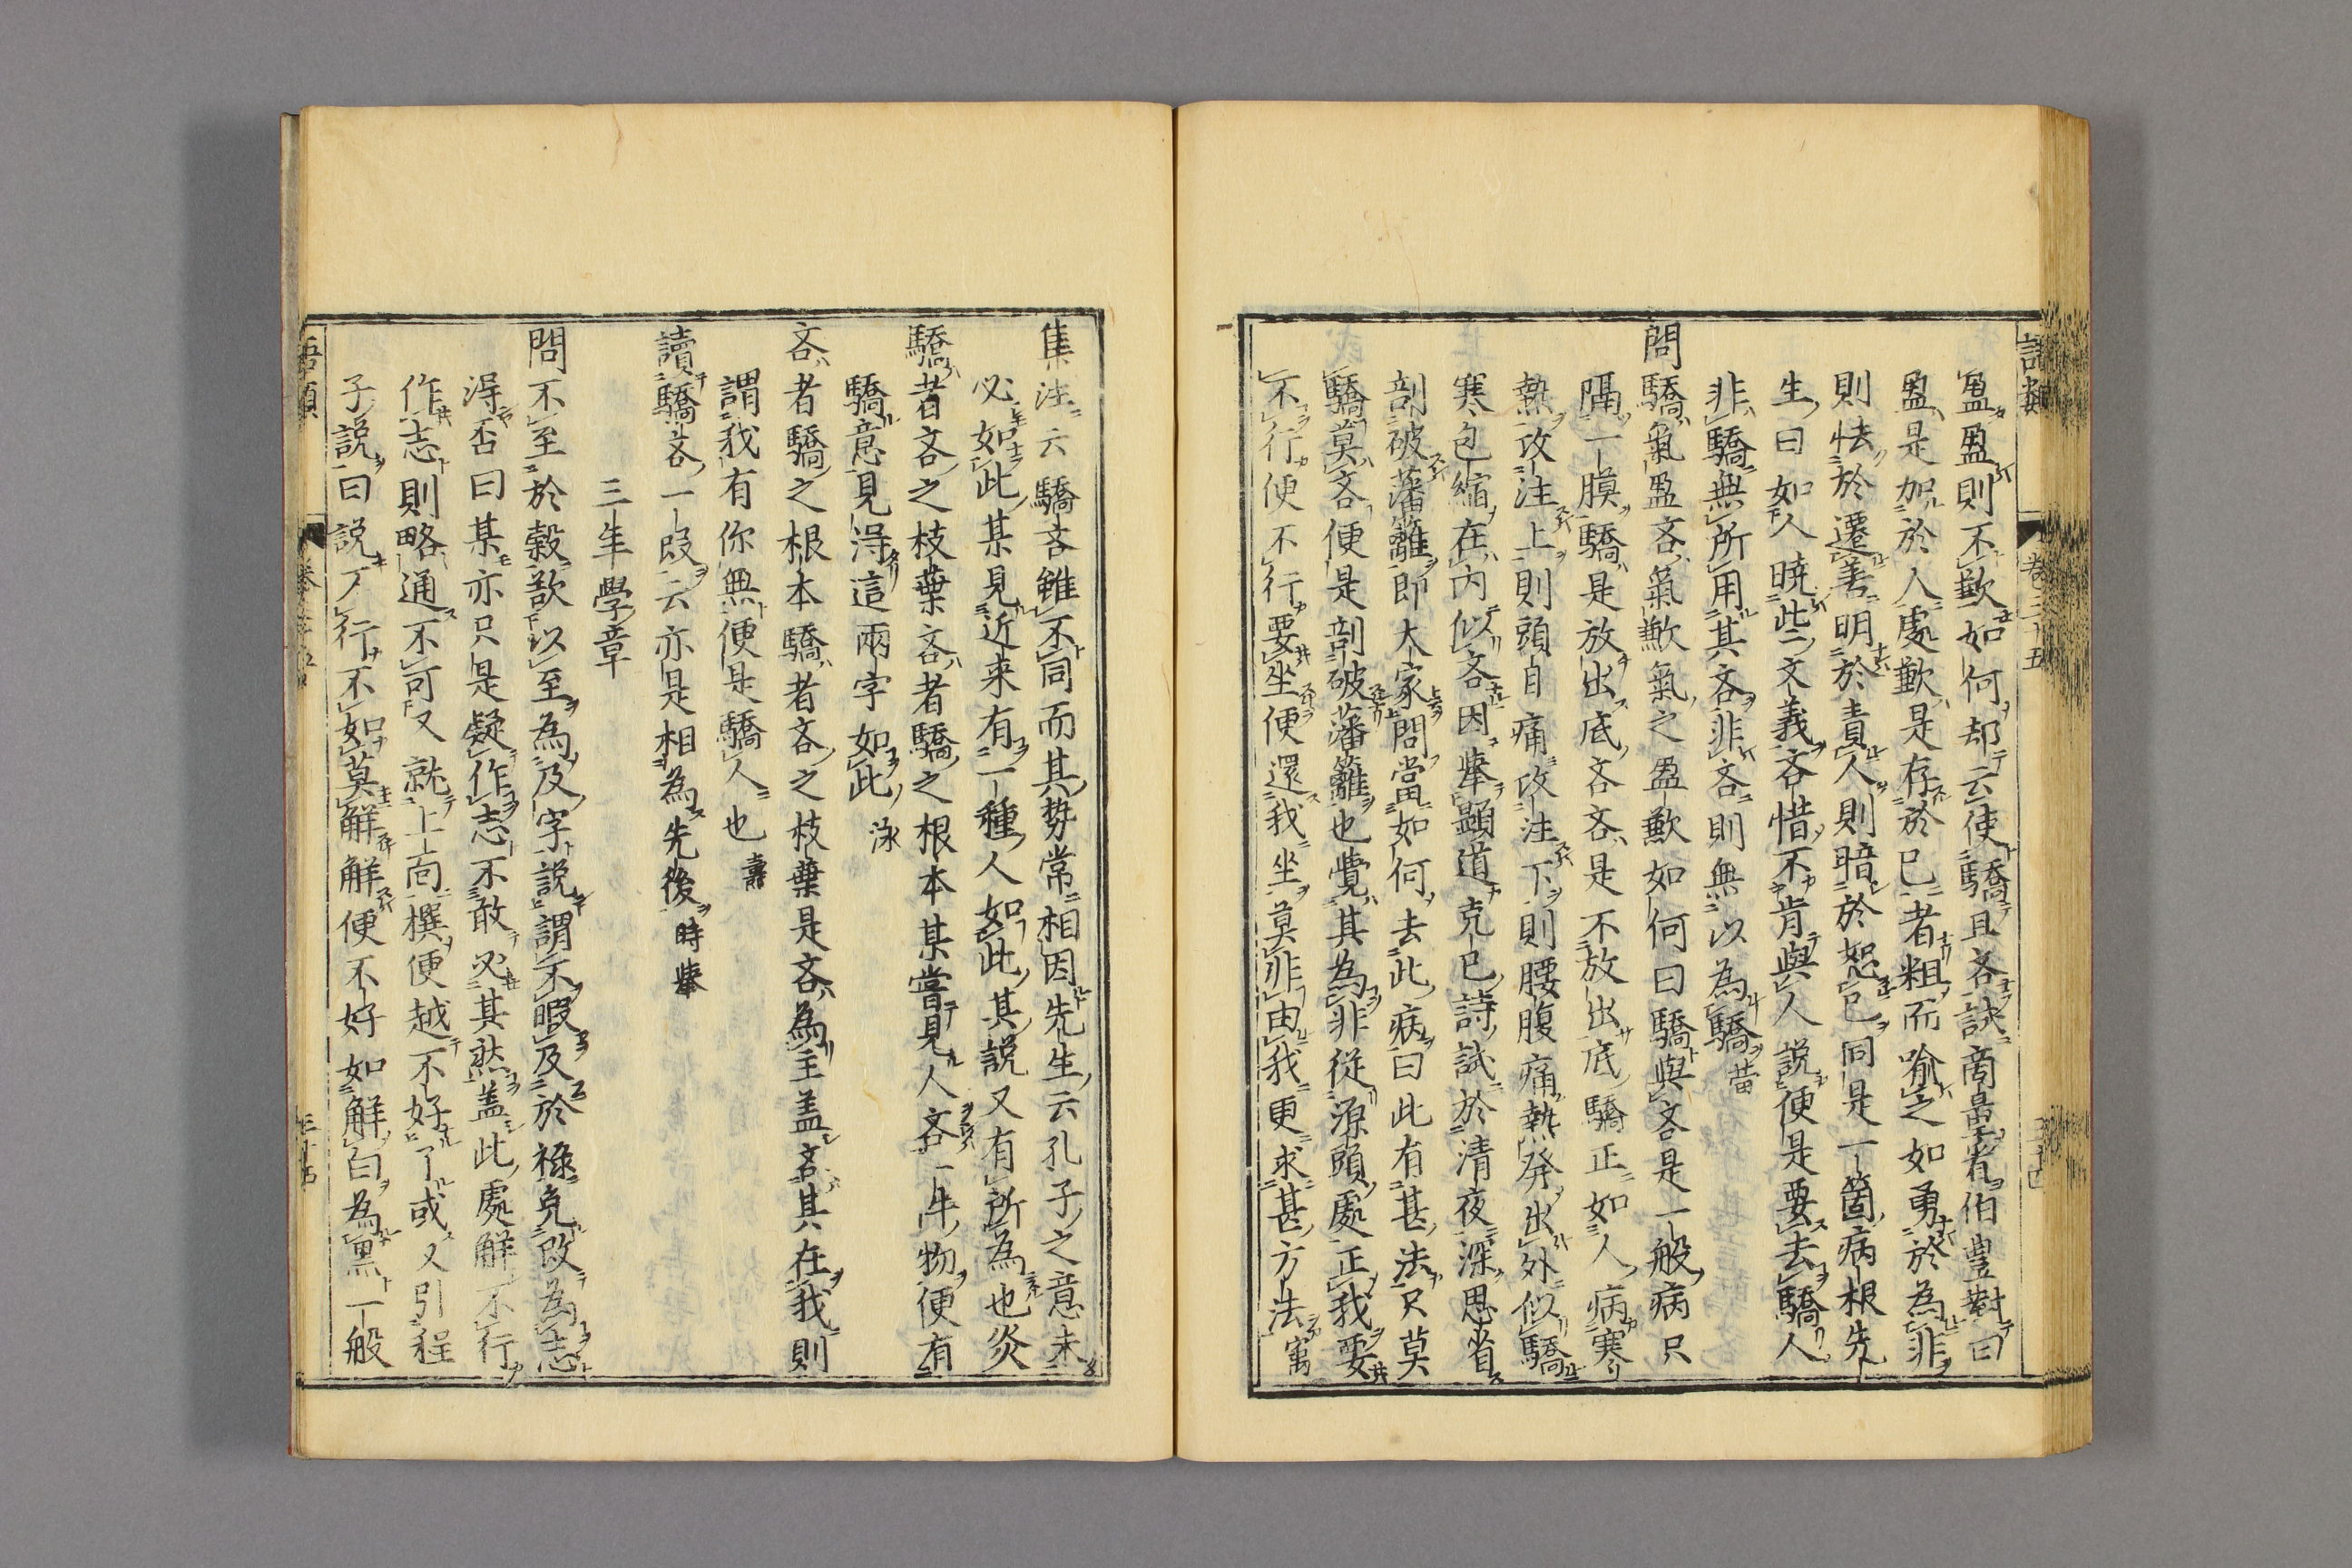 語類
卷三十五
盈盈則不歉如何却云使驕且吝試商量看伯豊對曰
盈是加於人處歉是存於己者粗而喻之如勇於為非
則怯於遷善明於責人則暗於恕己同是一箇病根先
生曰如人曉此文義吝惜不肯與人說便是要去驕人
非驕無所用其吝非吝則無以為驕 㽦
問驕氣盈吝氣歉氣之盈歉如何曰驕與吝是一般病只
隔一膜驕是放出底吝吝是不放出底驕正如人病寒
熱攻注上則頭目痛攻注下則腰腹痛熱發出外似驕
寒包縮在內似吝因舉顯道克己詩試於清夜深思省
剖破藩籬即大家問當如何去此病曰此有甚法只莫
驕莫吝便是剖破藩籬也覺其為非從源頭處正我要
不行便不行要坐便還我坐莫非由我更求甚方法㝢
集注云驕吝雖不同而其勢常相因先生云孔子之意未
必如此某見近来有一種人如此其說又有所為也炎
驕者吝之枝葉吝者驕之根本某嘗見人吝一件物便有
驕意見得這兩字如此 泳
吝者驕之根本驕者吝之枝葉是吝為主盖吝其在我則
謂我有你無便是驕人也 燾
讀驕吝一段云亦是相為先後 時舉
三年學章
問不至於穀欲以至為及字說謂不暇及於祿免改為志
得否曰某亦只是疑作志不敢必其然盖此處解不行
作志則略通不可又就上面撰便越不好了或又引程
子說曰說了行不如莫解解便不好如解白為黑一般
語類
三十五